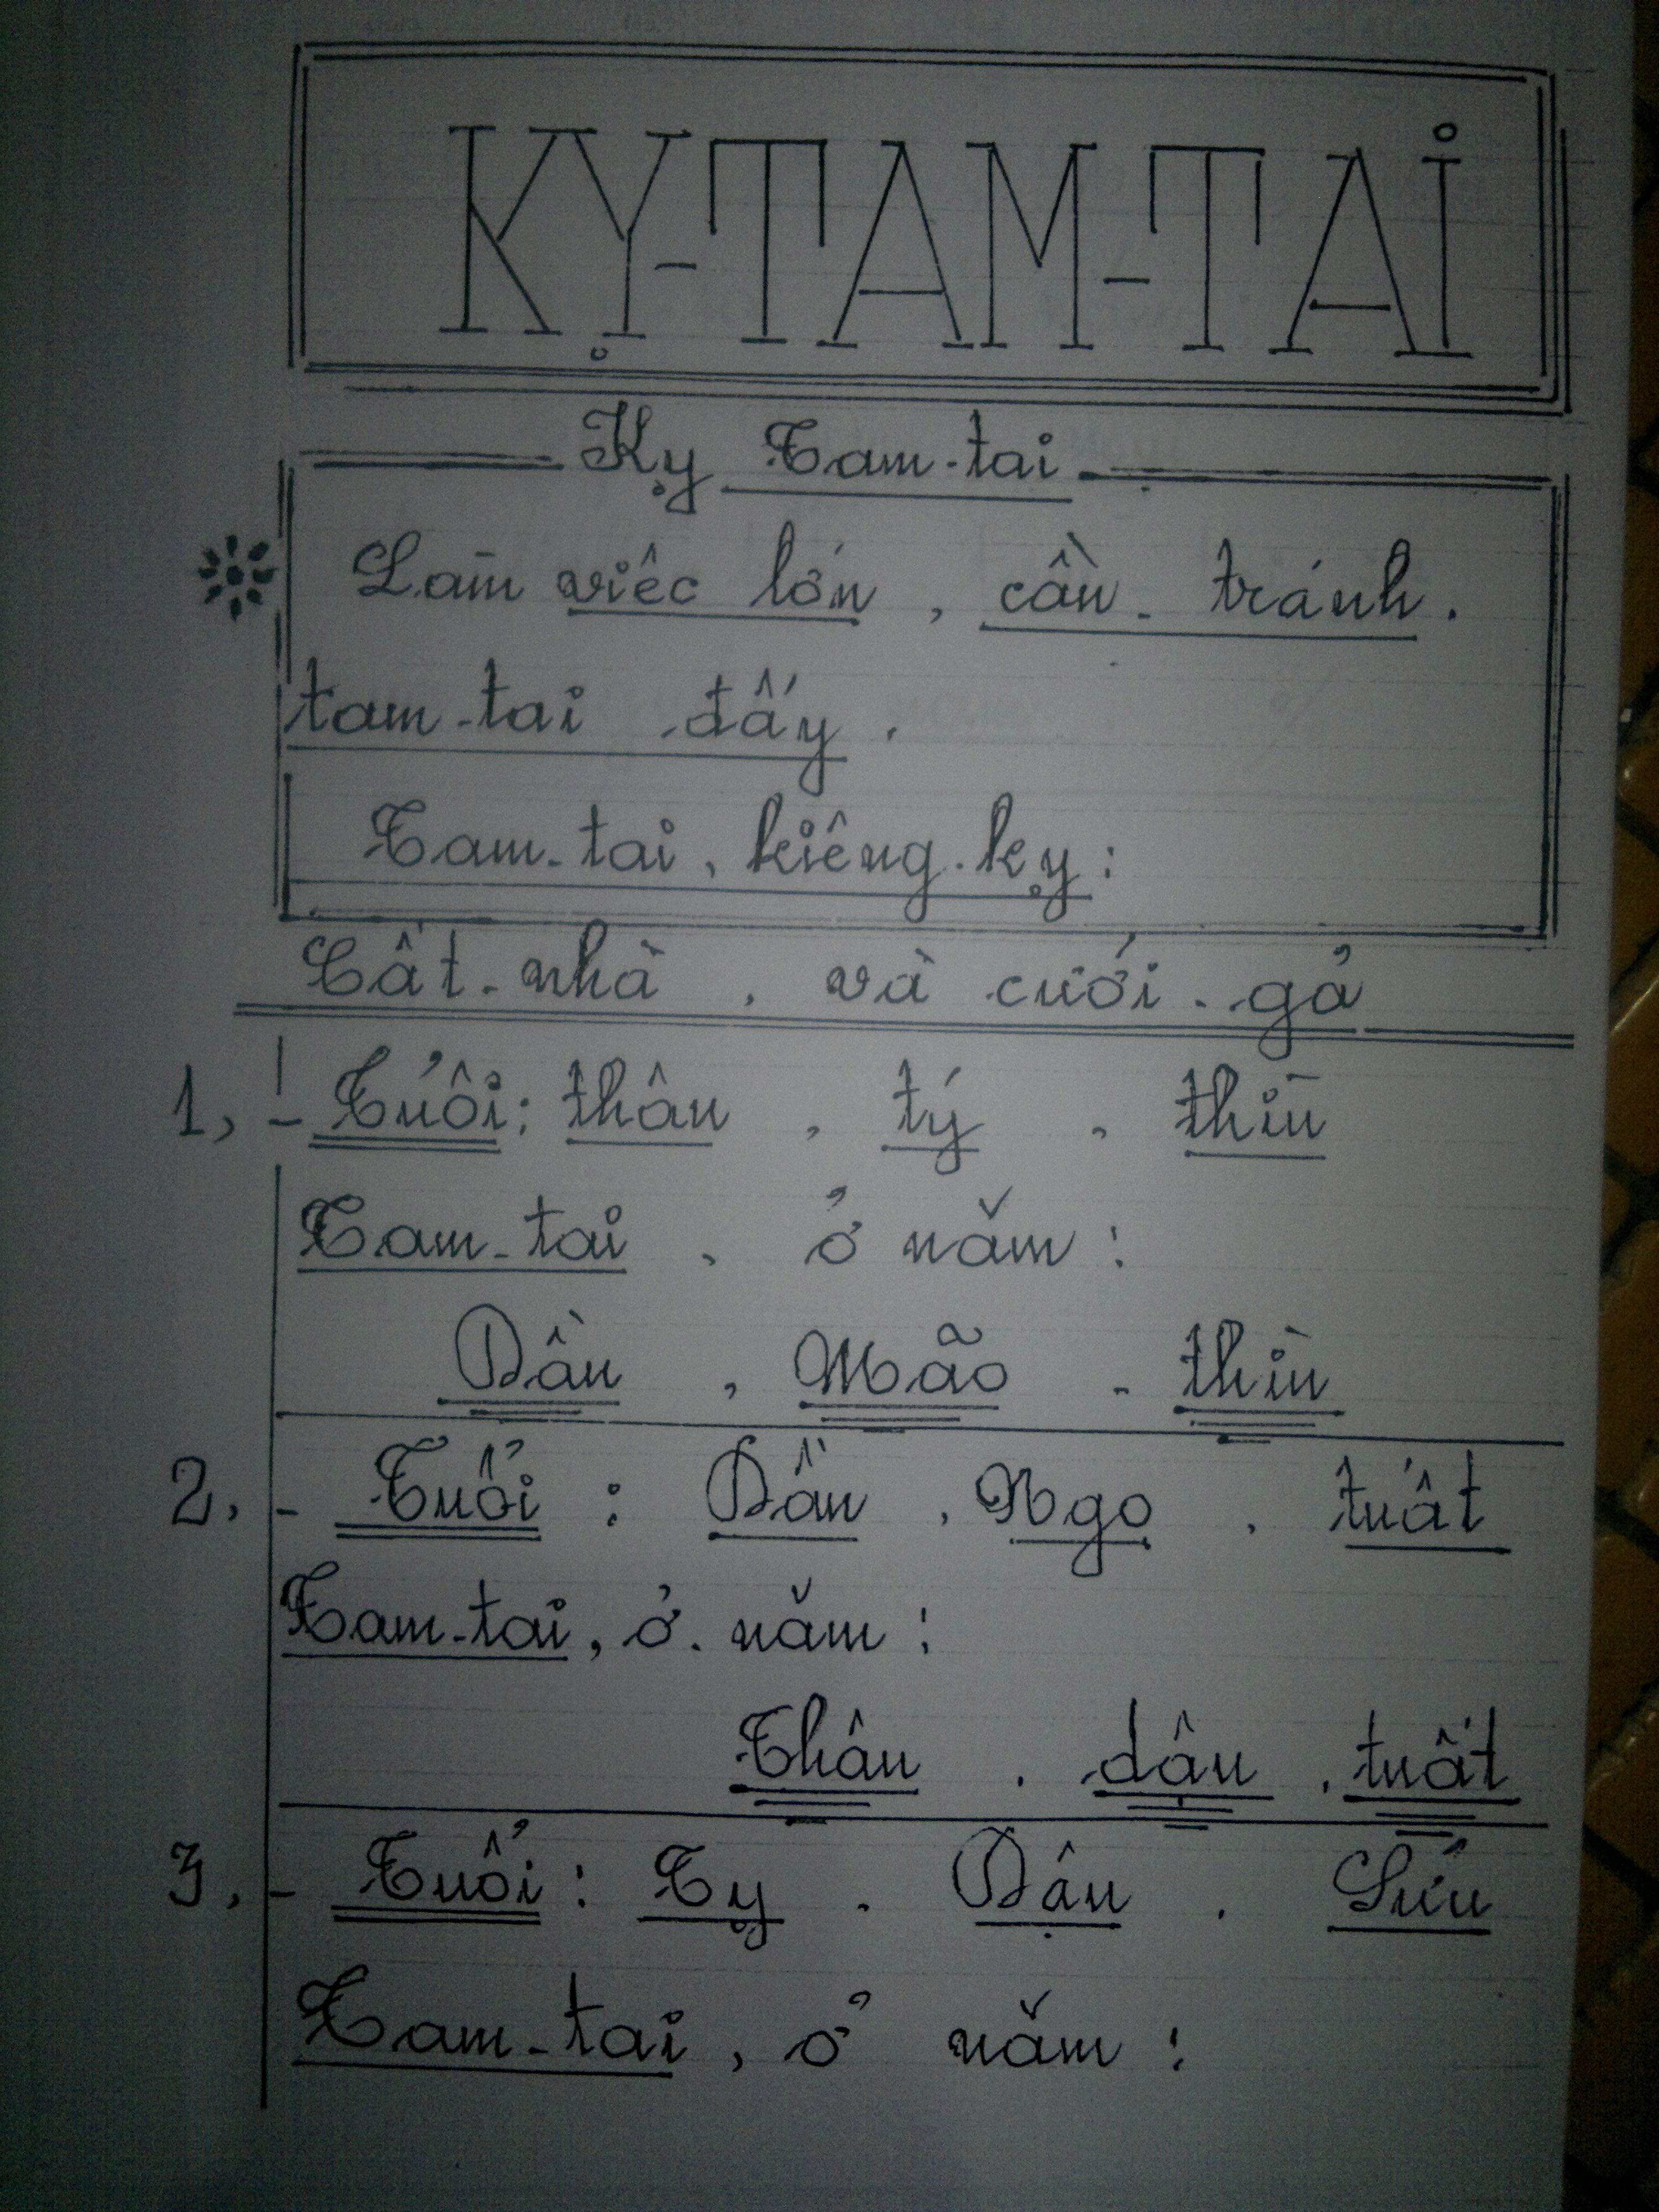 KỴ-TAM-TAI
Kỵ Tam-tai
Làm viêc lớn, cần tránh.
tam-tai đấy.
Tam-tai, kiêng-kỵ:
Cất-nhà, và cưới-gả
1, - Tuổi: thân, tý, thìn
Tam-tai, ở năm:
Dần, Mão, thìn
2, - Tuổi: Dần, Ngọ, tuất
Tam-tai, ở năm:
Thân, dậu, tuất
3, - Tuổi: Tỵ, Dậu, Sửu
Tam-tai, ở năm: